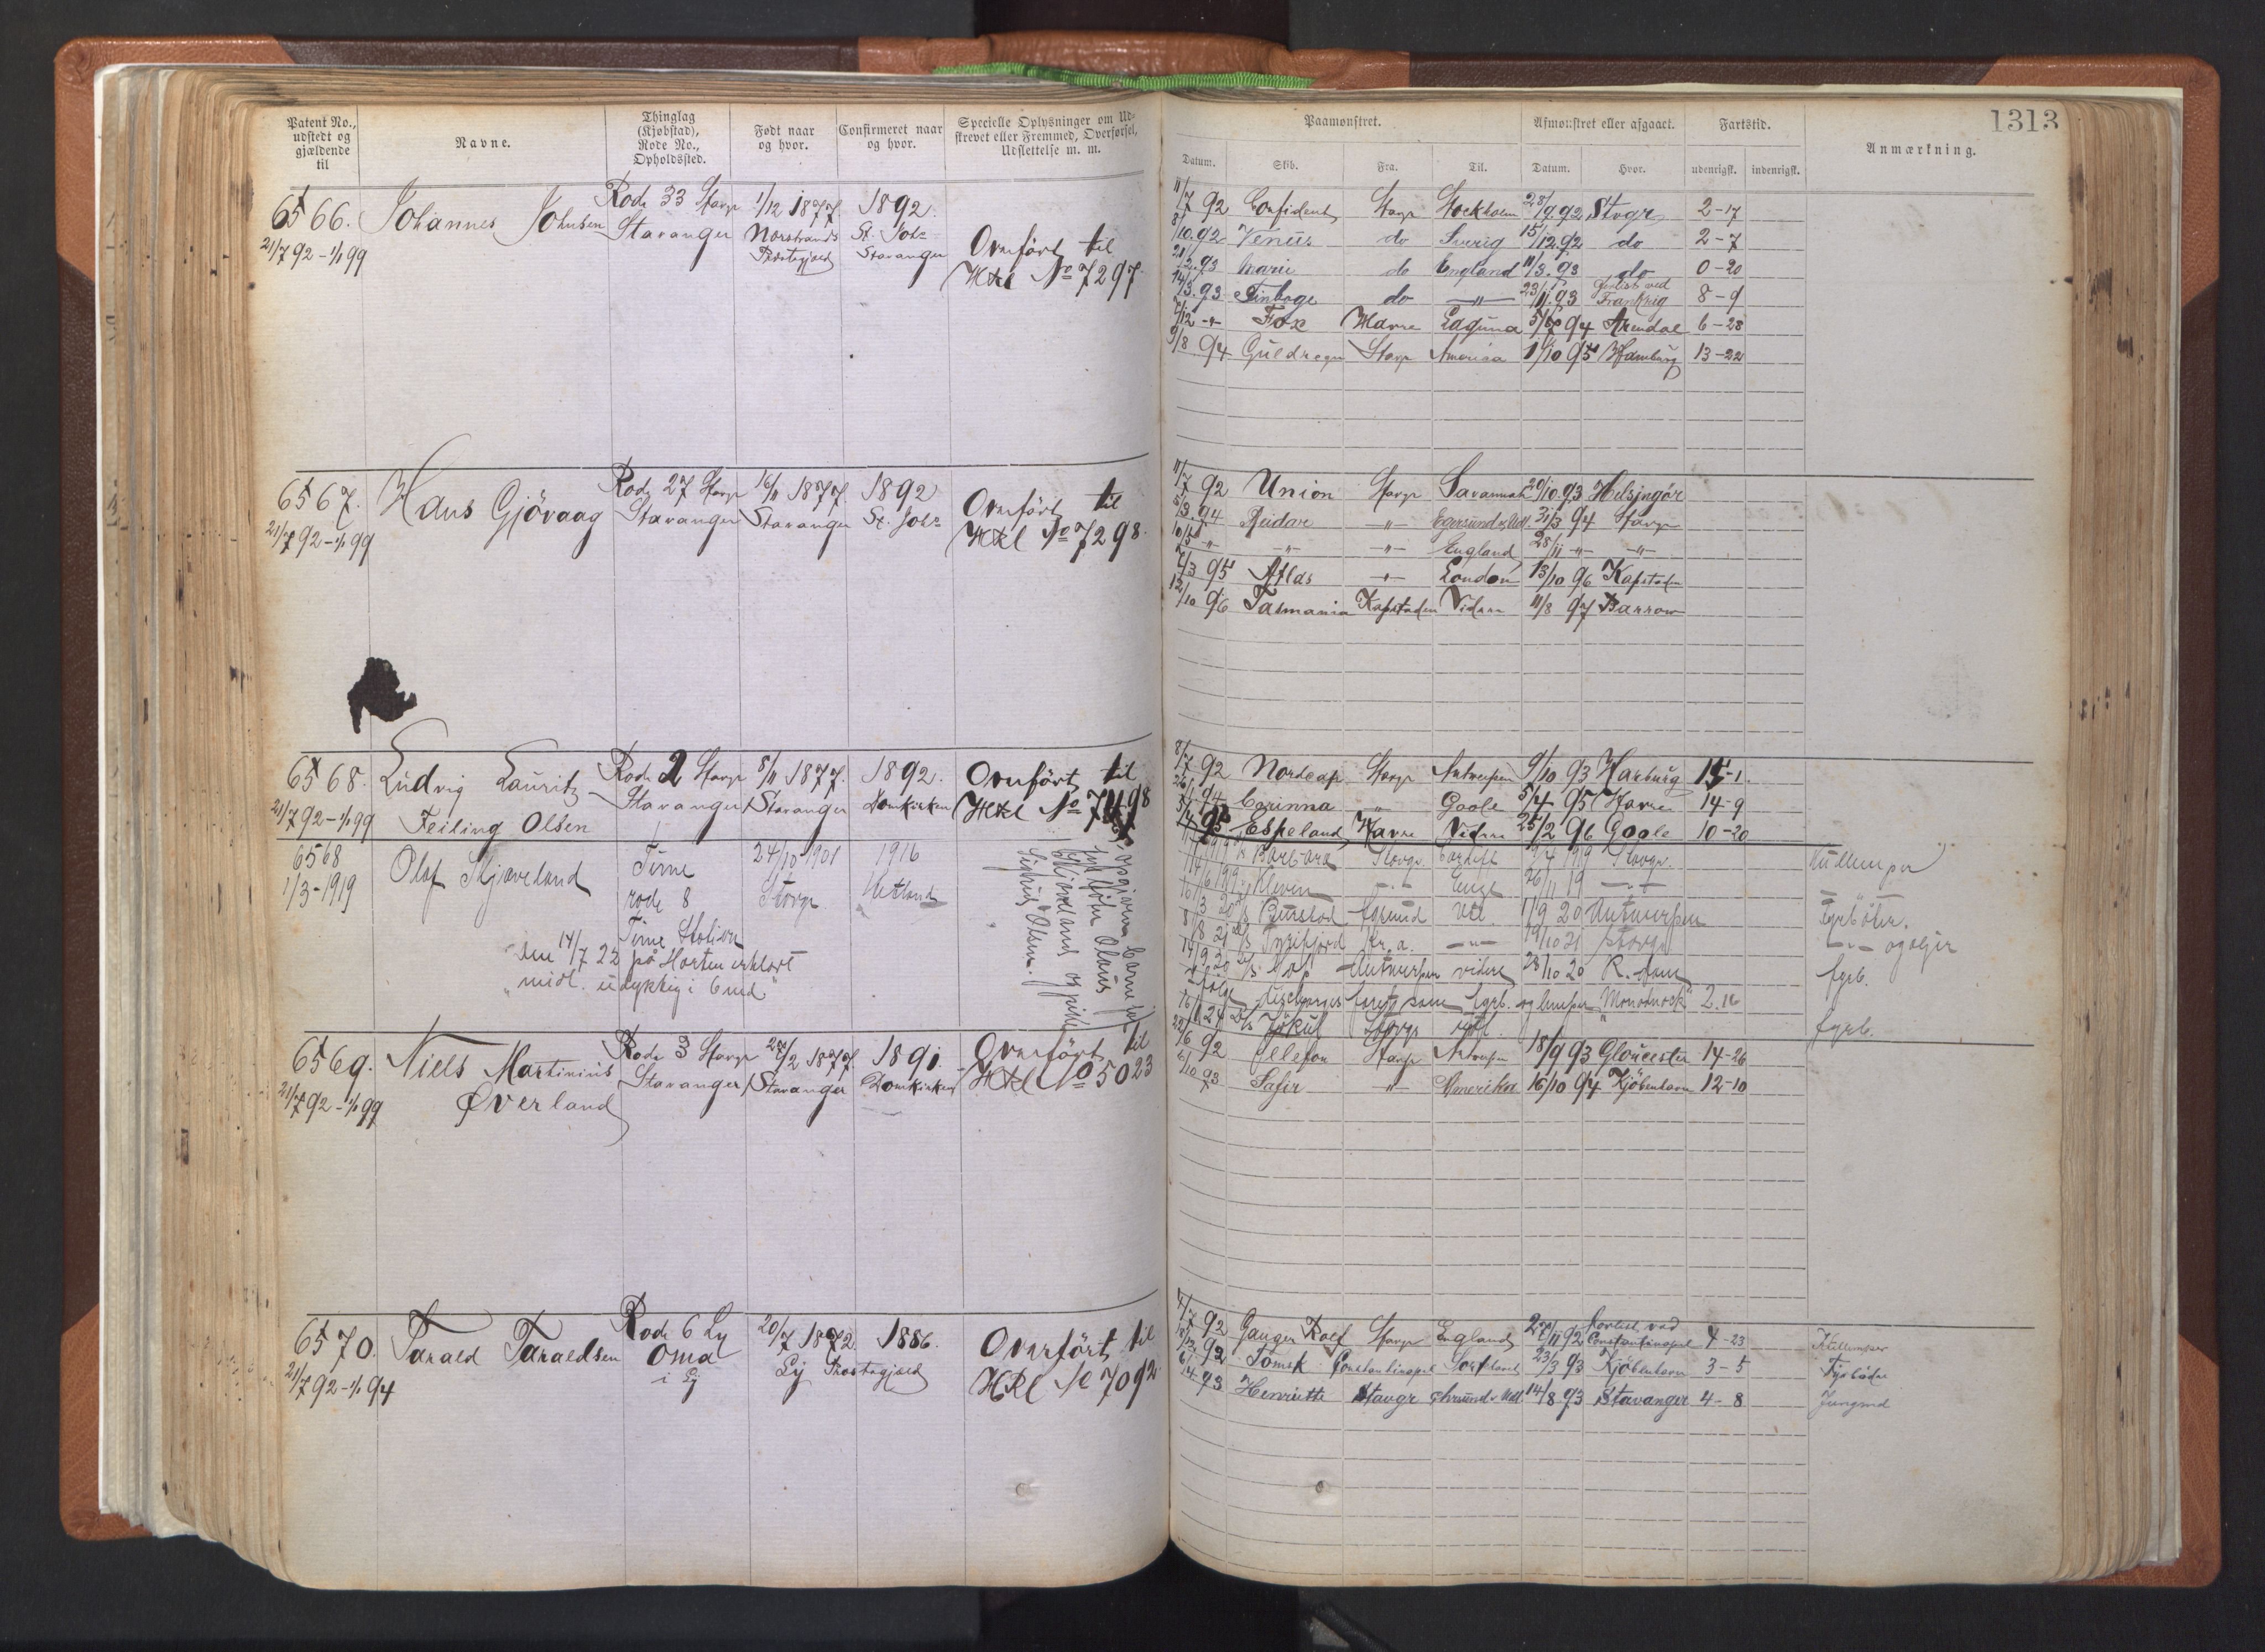 Patent No., udstedt og gjældende til
Navne.
Thinglag (Kjøbstad), Rode No., Opholdssted.
Født naar og hvor.
Confirmeret naar og hvor.
Specielle Oplysninger om Udskrevet eller Fremmed, Overførsel, Udslettelse m. m.
Paamønstret.
Afmønstret eller afgaaet.
Fartstid.
1313
Datum. Skib. Fra. Til. Datum. Hvor. udenrigsk. indenrigsk.
Anmærkning.
6566. Johannes Johnsen Rode 33 Stavgr 1/12 1877. 1892.
21/7 92 - 1/1 99 Stavanger Norstrands Præstegjæld St. Johs Stavanger
Overført til
HRl No 7297.
11/7 92 Confidentz Stavgr Stockholm 28/9 92 Stvgr 2-17
8/10.92 Venus do Sverig 15/12.92 do 2-7
21/2.93 Marie do England 11/3.93 do 0-20
14/3.93 Finboge do -"- 23/11.93 forlist ved Frankrig 8-9
7/12 -"- Fox Havre Laguna 5/7 94 Arendal 6-28
9/8 94 Guldregn Stavgr America 1/10 95 Hamburg 13-22
6567. Hans Gjövaag Rode 27 Stavgr 16/11 1877. 1892
21/7 92 - 1/1 99 Stavanger Stavanger St. Johs
Overført til
HRl No 7298.
11/7 92 Union Stavgr Savannah 20/10.93 Helsingör
5/3 94 Reidar -"- Egersund & Udl. 31/3 94 Stavgr
10/5 -"- -"- -"- England 28/11 -"- -"-
7/3 95 Atlas -"- London 13/10 96 Kapstaden
12/10 96 Tasmania Kapstaden Videre 11/8 97 Barrow
6568. Ludvig Lauritz Rode 2 Stavgr 8/11 1877. 1892.
21/7 92 - 1/1 99 Feiling Olsen Stavanger Stavanger Domkirken
Overført til
HRl No 7498
8/7 92 Nordcap Stavgr Antwerpen 9/10 93 Harburg 15-1.
94 Corinna -"- Goole 5/4 95 Havre 14-9
95 Espeland Havre Videre 25/2 96 Goole 10-20
6568 Olaf Skjæveland Time 24/10 1901 1916
1/3-1919 rode 8 Stavgr. Hetland
Time Station
den 14/7 22 på Horten erklært
"midl. udyktig i 6 md"
opgiven barne
Sigfrid Olsen.
19 Barbara Stavgr. Cardiff 19 Stavgr. Kullemper
19 Kleven -"- Engl 26/11 19 -"- Fyrböter.
3 20 Egersund Utl. 1/9 20 Antwerpen -"- og oljer
8/8 21 Tyrifjord Kr.a. -"- 19/10 21 Stavgr fyrb.
14/9 20 Antwerpen videre 28/10 20 R.dam
ifölge discharges faret som fyrb. og lemper "Monadnock" 2.16
24 Jökul Stavgr utl. fyrb.
6569. Niels Martinius Rode 3 Stavgr 2 1877. 1891.
21/7 92 - 1/1 99 Øverland Stavanger Stavanger Domkirken
Overført til
HRl No 5023
22/6 92 Ellefou Stavgr Antwerpen 18/9 93 Gloucester 14-26
10 93 Safir -"- Amerika 16/10 94 Kjöbenhavn 12-10
6570. Tarald Taraldsen Rode 6 Ly 20/7 1872. 1886.
21/7 92 - 1/1 94 Oma i Ly Ly Præstegjæld
Overført til
HRl No 7092
7 92 Ganger Rolf Stavgr England 27/11 92 forlist ved Constantinopel 4-23 Kullemper
12 92 Tomsk Constantinopel 23/3 93 Kjöbenhavn 3-5 Fyrböder
4 93 Henriette Stavgr Chrsund & Udl 14/8 93 Stavanger 4-8 Jungmd